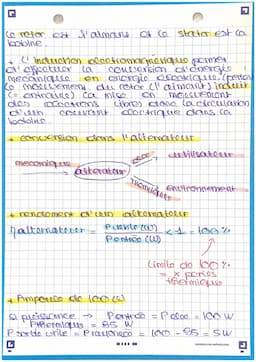 Le rotor est l'aimant et le stator est la
bobine.
+ L'induction électromagnétique permet
d'effectuer la conversion d'énergie
mécanique en énergie électrique.
le mouvement du rotor (l'aimant) induit
(= entraîne) la mise en mouvement
des électrons libres dans la circulation
d'un courant électrique dans la
bobine
+ conversion dans l'alternateur
mécanique
alternateur
élec
utilisateur
thermique
environnement
+ rendement d'un alternateur
η alternateur = P utile (W) / P entrée (W) < 1 = 100%
Limite de 100%
= x pertes
thermiques
+ Ampoule de 100 W
puissance → P entrée = P élec = 100 W
P thermique = 95 W
P sortie utile = P rayonnée = 100 - 95 = 5 W